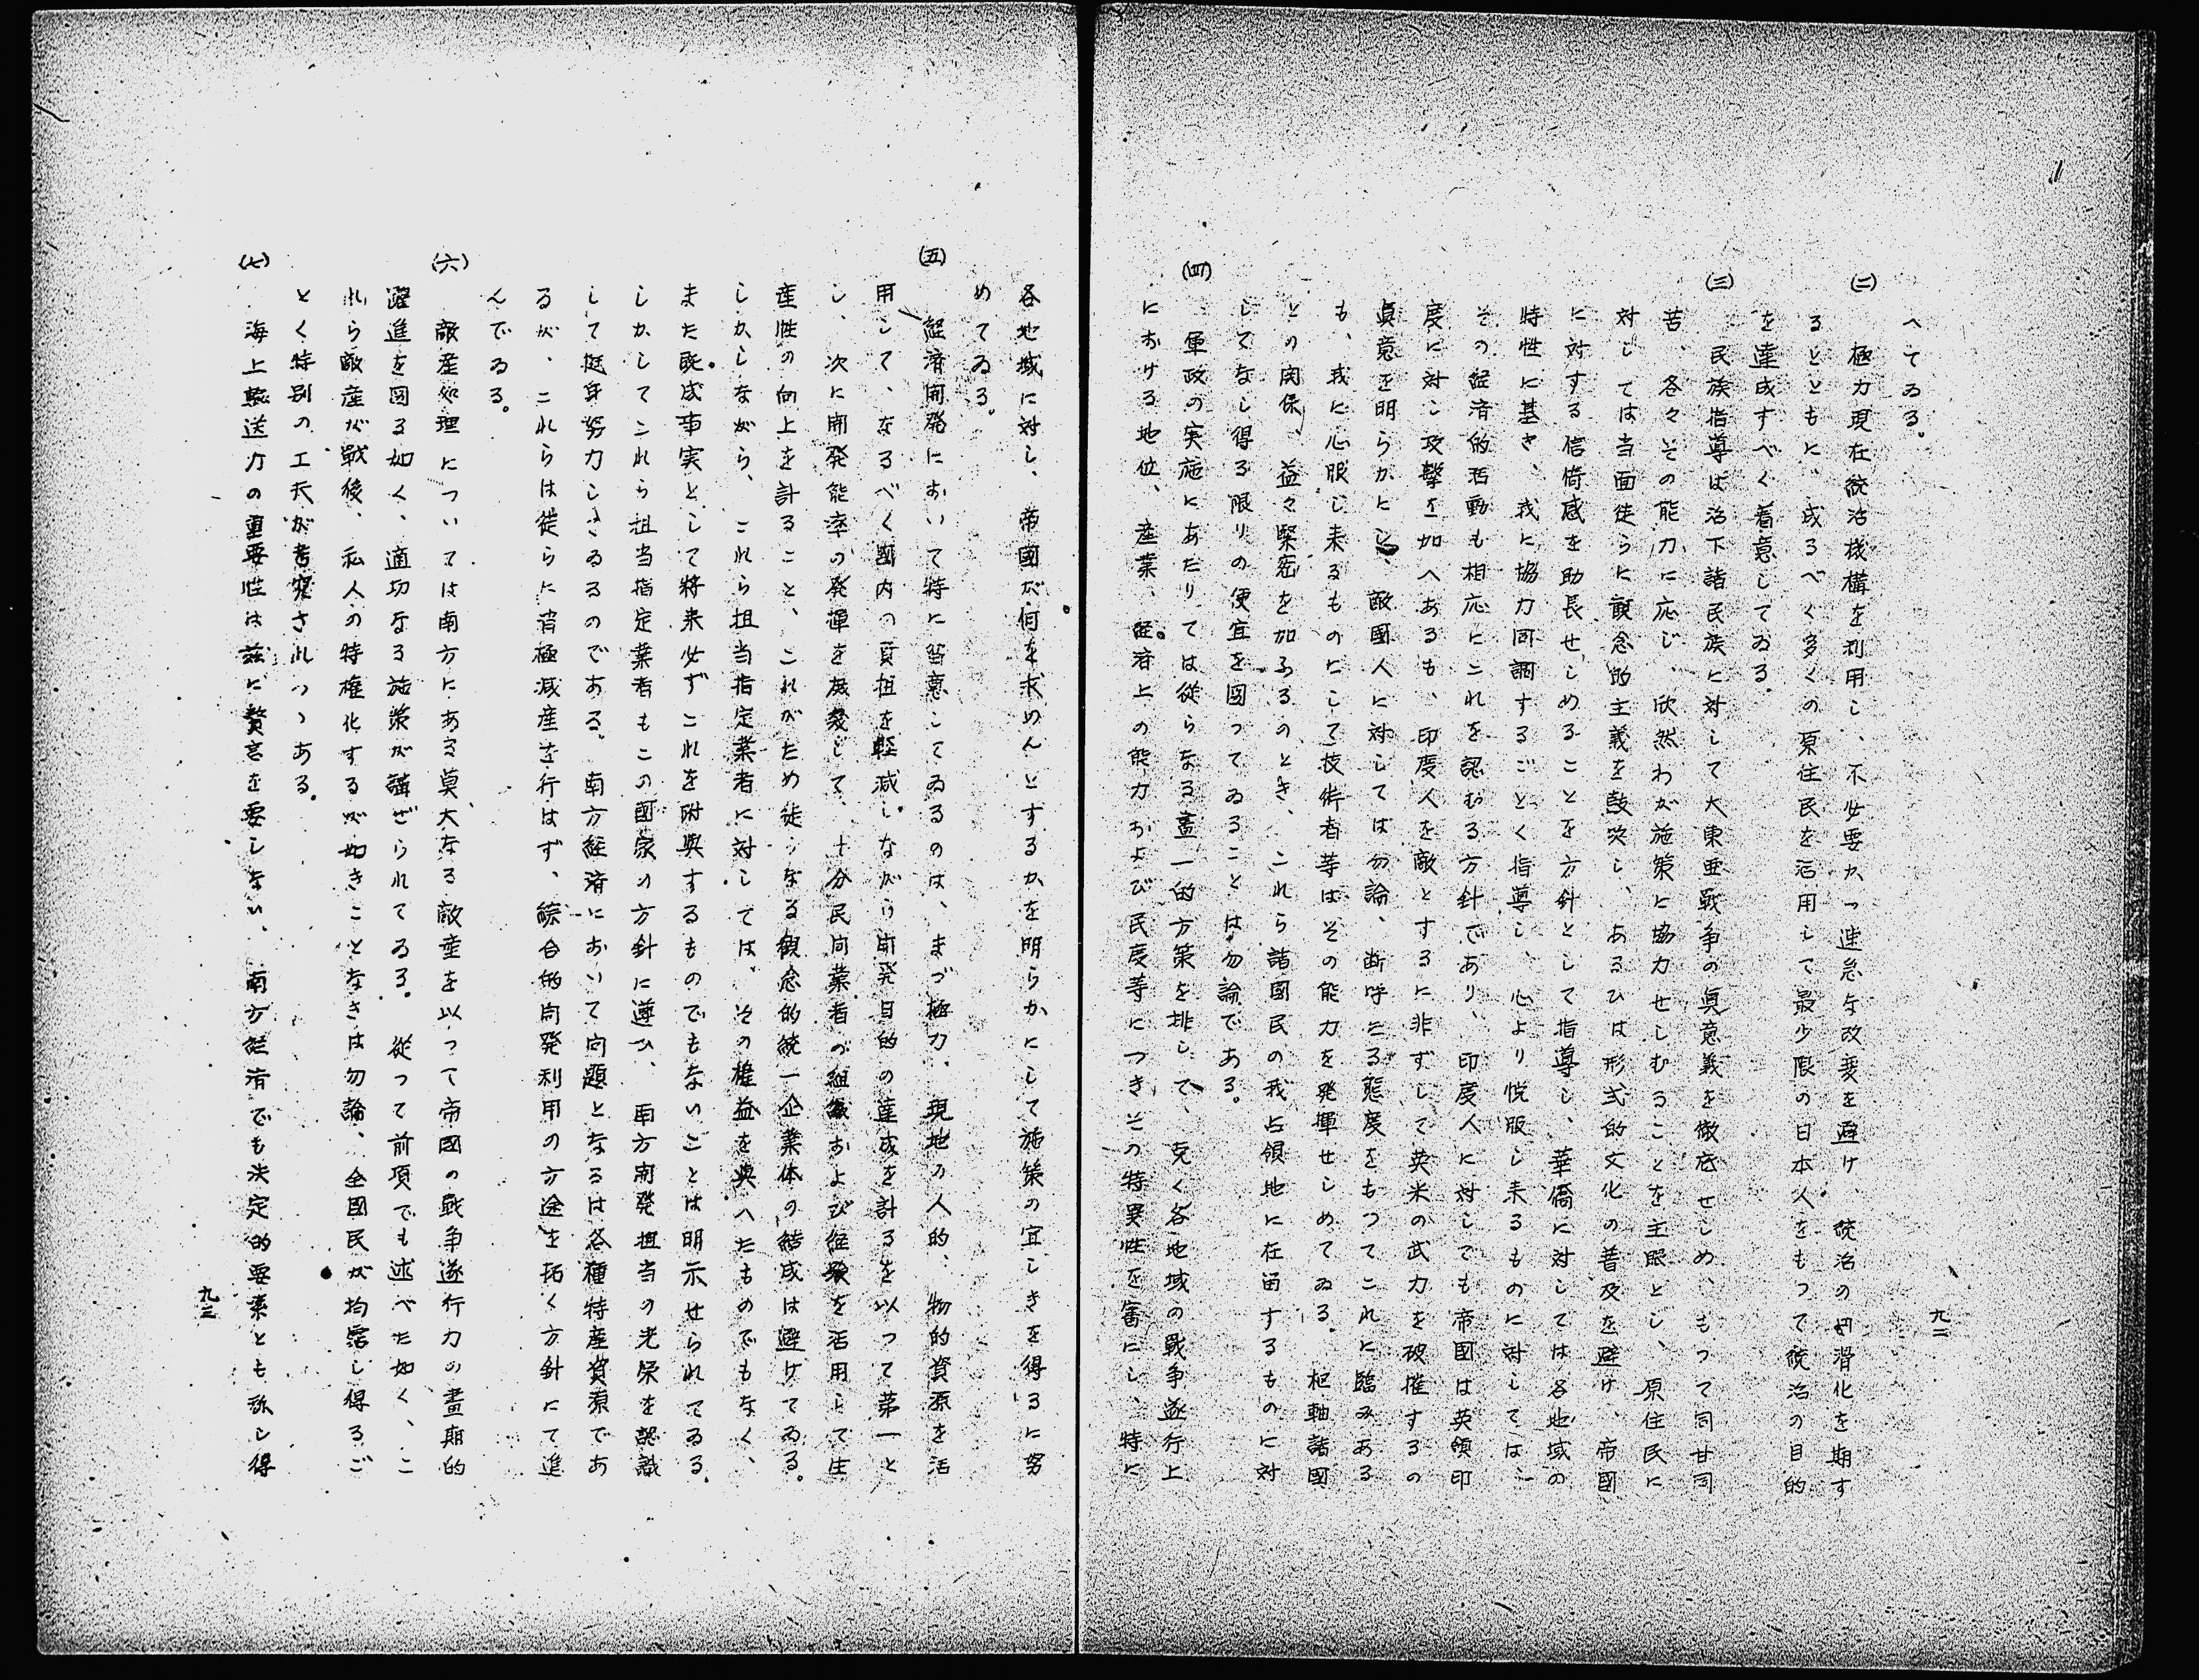 九二
へてゐる。
(二) 極力現在統治機構を利用し、不必要かつ速急な改変を避け、統治の円滑化を期す
るとともに、成るべく多くの原住民を活用して最少限の日本人をもつて統治の目的
を達成すべく着意してゐる。
(三) 民族指導は治下諸民族に対して大東亜戦争の眞意義を徹底せしめ、もつて同甘同
苦、各々その能力に応じ、欣然わが施策に協力せしむることを主眼とし、原住民に
対しては当面徒らに観念的主義を鼓吹し、あるひは形式的文化の普及を避け、帝國
に対する信倚感を助長せしめることを方針として指導し、華僑に対しては各地域の
特性に基き、我に協力同調するごとく指導し、心より悦服し来るものに対しては、
その経済的活動も相応にこれを認むる方針であり、印度人に対しても帝國は英領印
度に対し攻撃を加へあるも、印度人を敵とするに非ずして英米の武力を破摧するの
眞意を明らかにし、敵國人に対しては勿論、断呼たる態度をもつてこれに臨みある
も、我に心服し来るものにして技術者等はその能力を発揮せしめてゐる。枢軸諸國
との関係、益々緊密を加ふるのとき、これら諸國民の我占領地に在留するものに対
してなし得る限りの便宜を図つてゐることは勿論である。
(四) 軍政の実施にあたりては徒らなる畫一的方策を排して、克く各地域の戦争遂行上
における地位、産業、経済上の能力および民度等につきその特異性を審にし、特に
各地域に対し、帝國が何を求めんとするかを明らかにして施策の宜しきを得るに努
めてゐる。
(五) 経済開発において特に留意してゐるのは、まづ極力、現地の人的、物的資源を活
用して、なるべく國内の負担を軽減しながら開発目的の達成を計るを以つて第一と
し、次に開発能率の発揮を庶幾して、十分民間業者の組織および経験を活用して生
産性の向上を計ること、これがため徒らなる観念的統一企業体の結成は避けてゐる。
しかしながら、これら担当指定業者に対しては、その権益を與へたものでもなく、
また既成事実として将来必ずこれを附與するものでもないことは明示せられてゐる。
しかしてこれら担当指定業者もこの國家の方針に遵ひ、南方開発担当の光栄を認識
して挺身努力しゐるのである。南方経済において問題となるは各種特産資源であ
るが、これらは徒らに消極減産を行はず、綜合的開発利用の方途を拓く方針にて進
んでゐる。
(六) 敵産処理については南方にある莫大なる敵産を以つて帝國の戦争遂行力の畫期的
躍進を図る如く、適切なる施策が講ぜられてゐる。従つて前項でも述べた如く、こ
れら敵産が戦後、私人の特権化するが如きことなきは勿論、全國民が均霑し得るご
とく特別の工夫が考究されつつある。
(七) 海上輸送力の重要性は茲に贅言を要しない、南方経済でも決定的要素とも称し得
九三